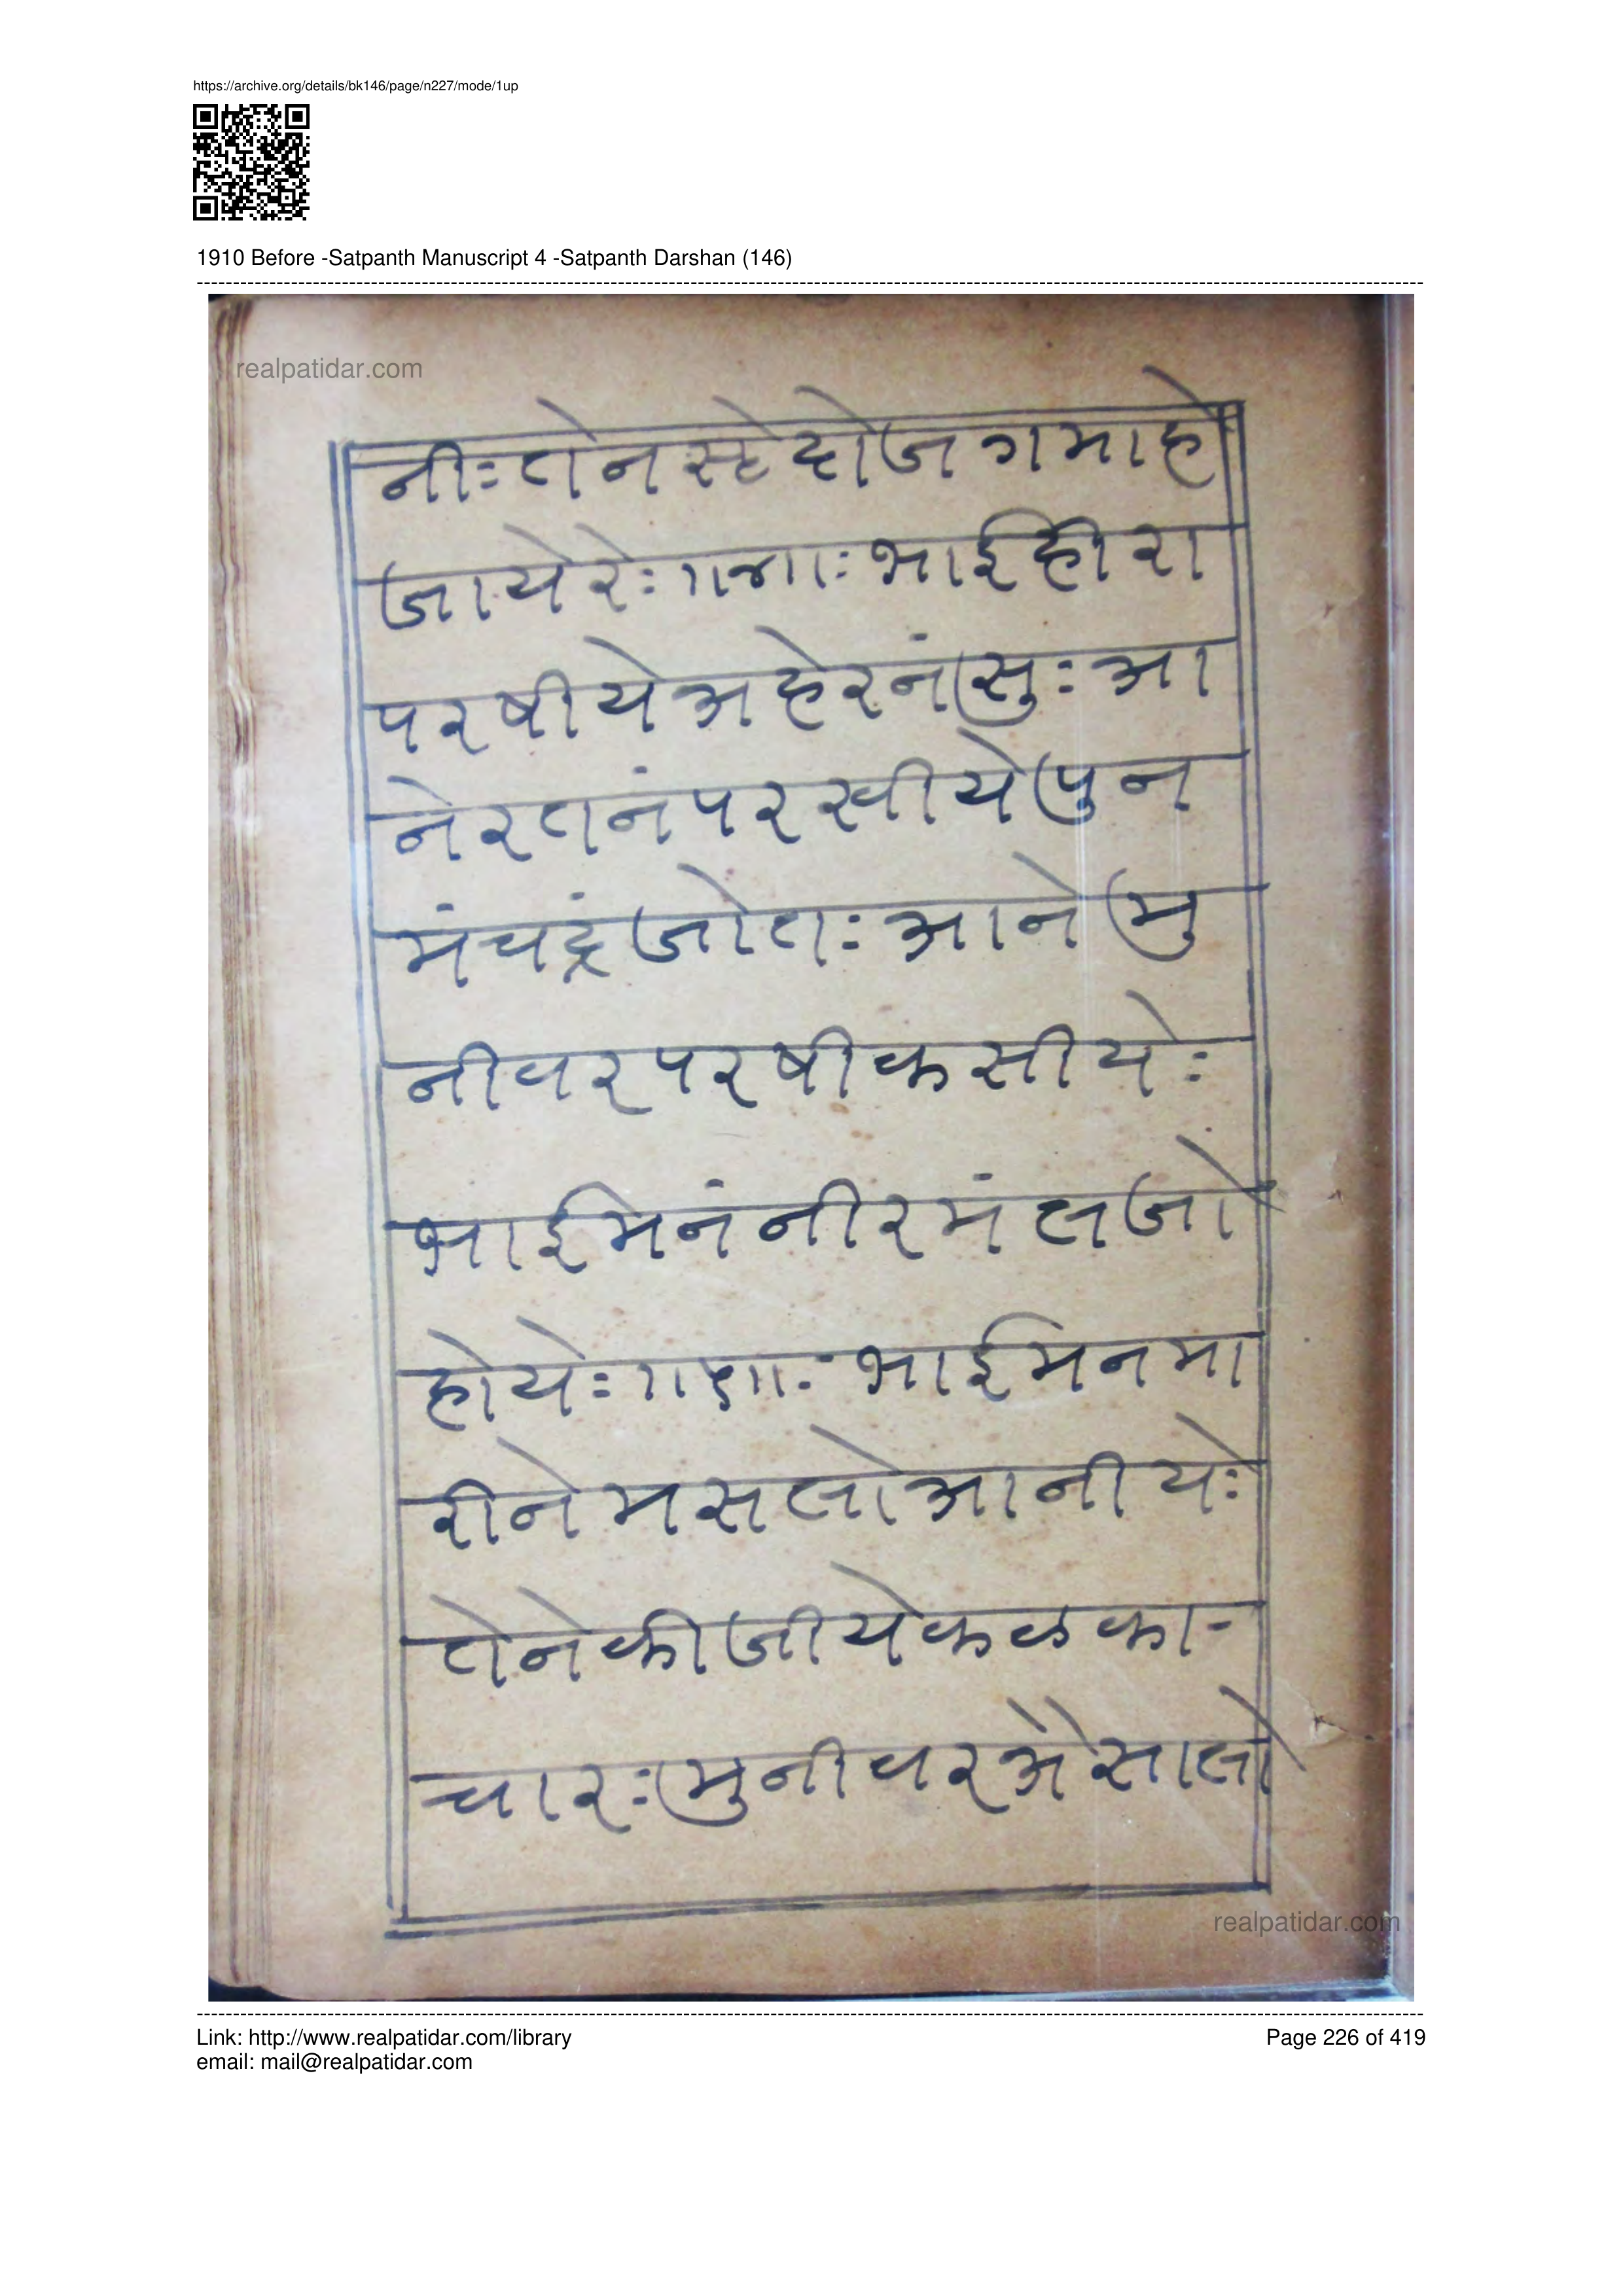 https://archive.org/details/bk146/page/n227/mode/1up
1910 Before -Satpanth Manuscript 4 -Satpanth Darshan (146)
realpatidar.com
नीः तेनस्हे दोजगमाहे
जायेरेः ॥४॥ः भाईहीरा
परषीयेअहेरनंसुः आ
नेरतनंपरखीयेपुन
मंचद्रंजोतः आनेमु
नीवरपरषीकसीयेः
भाईमनंनीरमंलजो
होयेः ॥५॥ः भाईमनमा
रीनेमसलोआनीयेः
तेनेकीजीयेकळका-
चारः मुनीवरअैसालो
realpatidar.com
Link: http://www.realpatidar.com/library
Page 226 of 419
email: mail@realpatidar.com